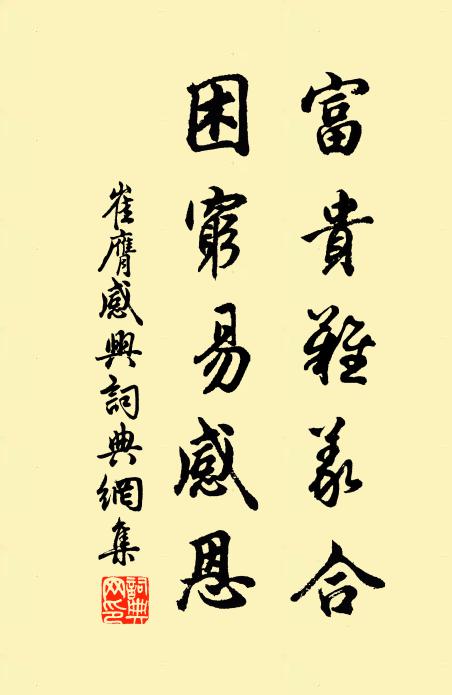 富貴難義合
困窮易感恩
崔膺感興詞典網集
詞典
网印